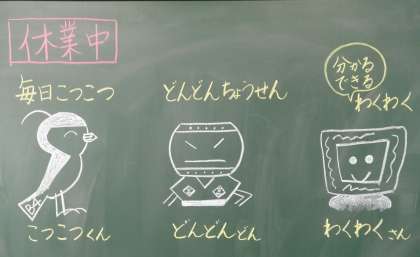 休業中
毎日こつこつ
どんどんちょうせん
分かる
できる
わくわく
こつこつくん
どんどんどん
わくわくさん